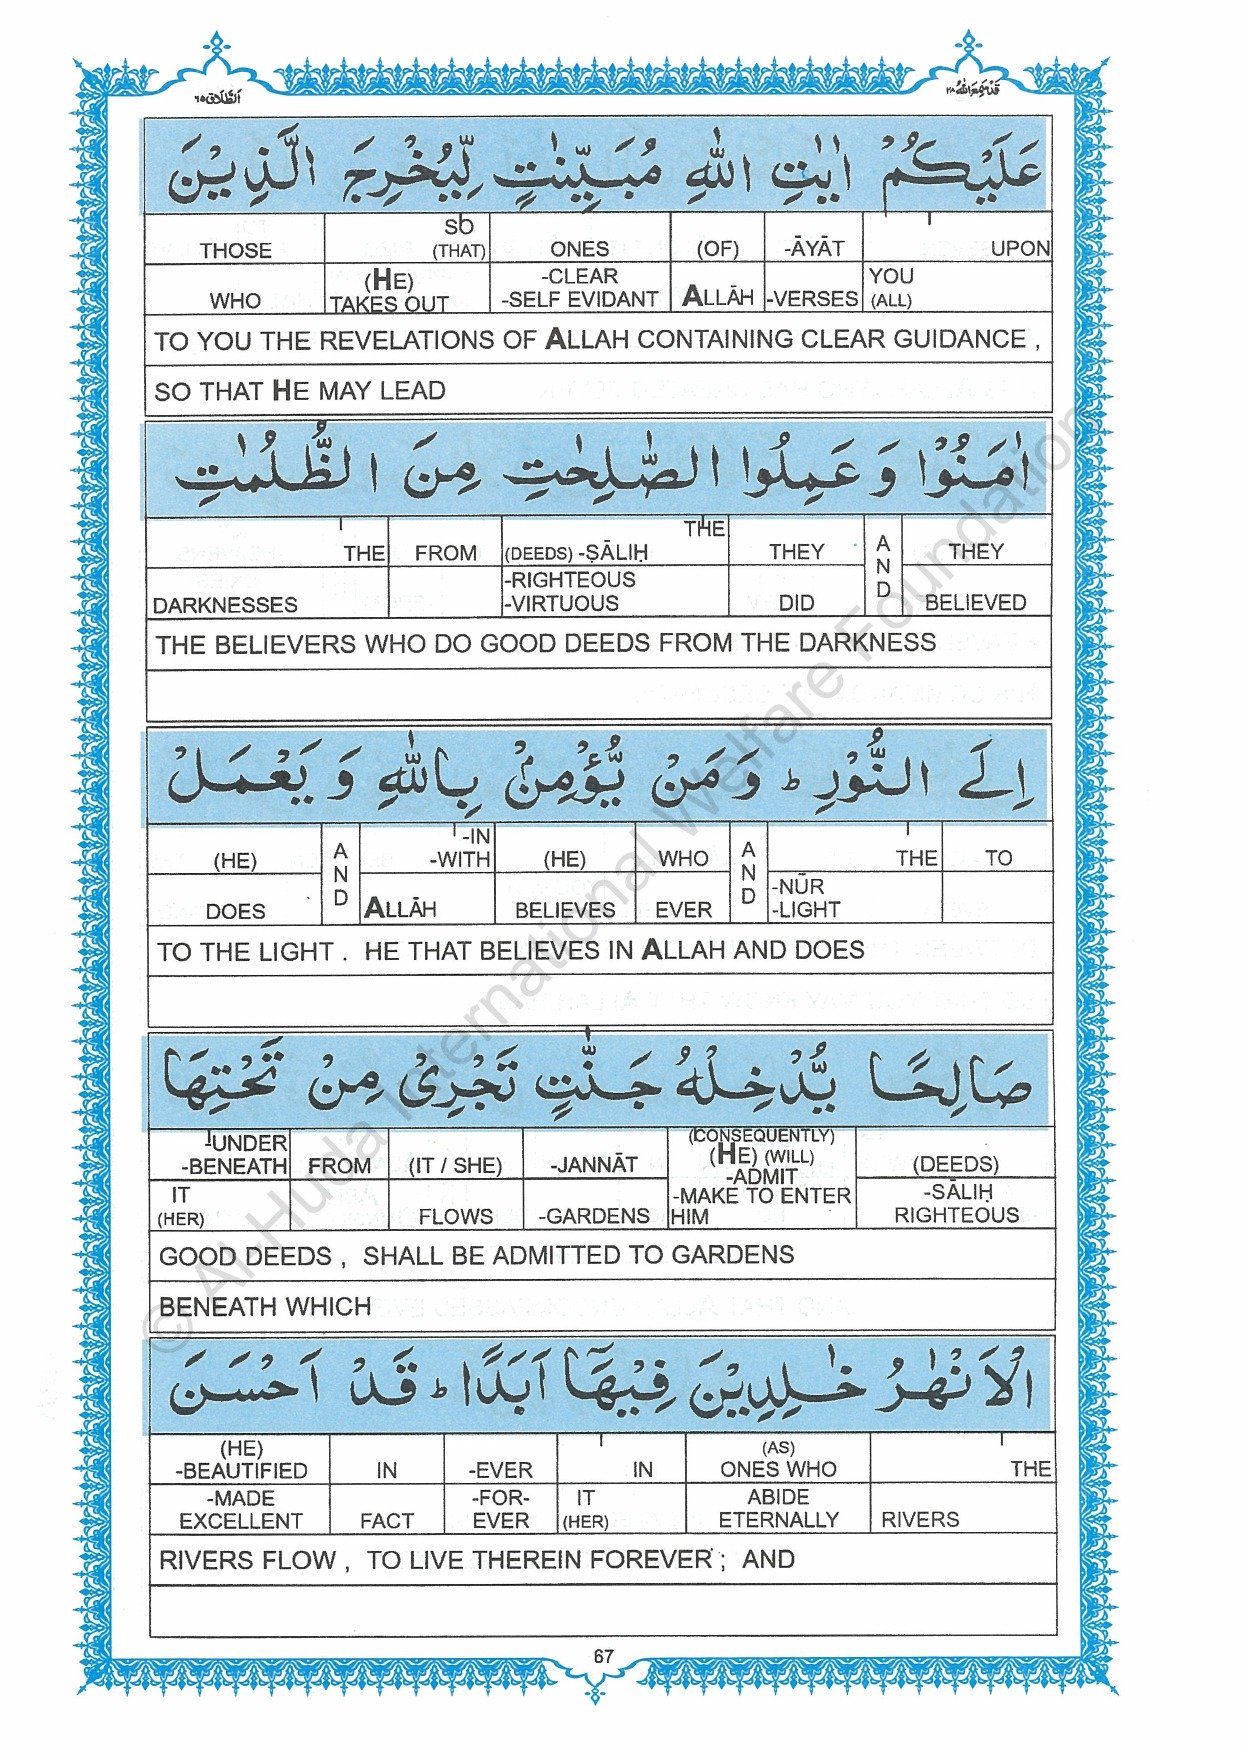 اَلطَّلَاق ٦٥
قَدْ سَمِعَ اللّٰهُ ٢٨
عَلَيْكُمْ اٰيٰتِ اللّٰهِ مُبَيِّنٰتٍ لِّيُخْرِجَ الَّذِيْنَ
THOSE SO (THAT) ONES (OF) -ĀYĀT UPON
WHO (HE) TAKES OUT -CLEAR -SELF EVIDANT ALLĀH -VERSES YOU (ALL)
TO YOU THE REVELATIONS OF ALLAH CONTAINING CLEAR GUIDANCE ,
SO THAT HE MAY LEAD
اٰمَنُوْا وَ عَمِلُوا الصّٰلِحٰتِ مِنَ الظُّلُمٰتِ
THE FROM THE (DEEDS) -ṢĀLIḤ THEY AND THEY
DARKNESSES -RIGHTEOUS -VIRTUOUS DID BELIEVED
THE BELIEVERS WHO DO GOOD DEEDS FROM THE DARKNESS
اِلَى النُّوْرِ ؕ وَ مَنْ يُّؤْمِنْۢ بِاللّٰهِ وَ يَعْمَلْ
(HE) AND -IN -WITH (HE) WHO AND THE TO
DOES ALLĀH BELIEVES EVER -NŪR -LIGHT
TO THE LIGHT . HE THAT BELIEVES IN ALLAH AND DOES
صَالِحًا يُّدْخِلْهُ جَنّٰتٍ تَجْرِيْ مِنْ تَحْتِهَا
-UNDER -BENEATH FROM (IT / SHE) -JANNĀT (CONSEQUENTLY) (HE) (WILL) -ADMIT (DEEDS)
IT (HER) FLOWS -GARDENS -MAKE TO ENTER HIM -SĀLIḤ RIGHTEOUS
GOOD DEEDS , SHALL BE ADMITTED TO GARDENS
BENEATH WHICH
الْاَنْهٰرُ خٰلِدِيْنَ فِيْهَاۤ اَبَدًا ؕ قَدْ اَحْسَنَ
(HE) -BEAUTIFIED IN -EVER IN (AS) ONES WHO THE
-MADE EXCELLENT FACT -FOR-EVER IT (HER) ABIDE ETERNALLY RIVERS
RIVERS FLOW , TO LIVE THEREIN FOREVER ; AND
67
© Al-Huda International Welfare Foundation